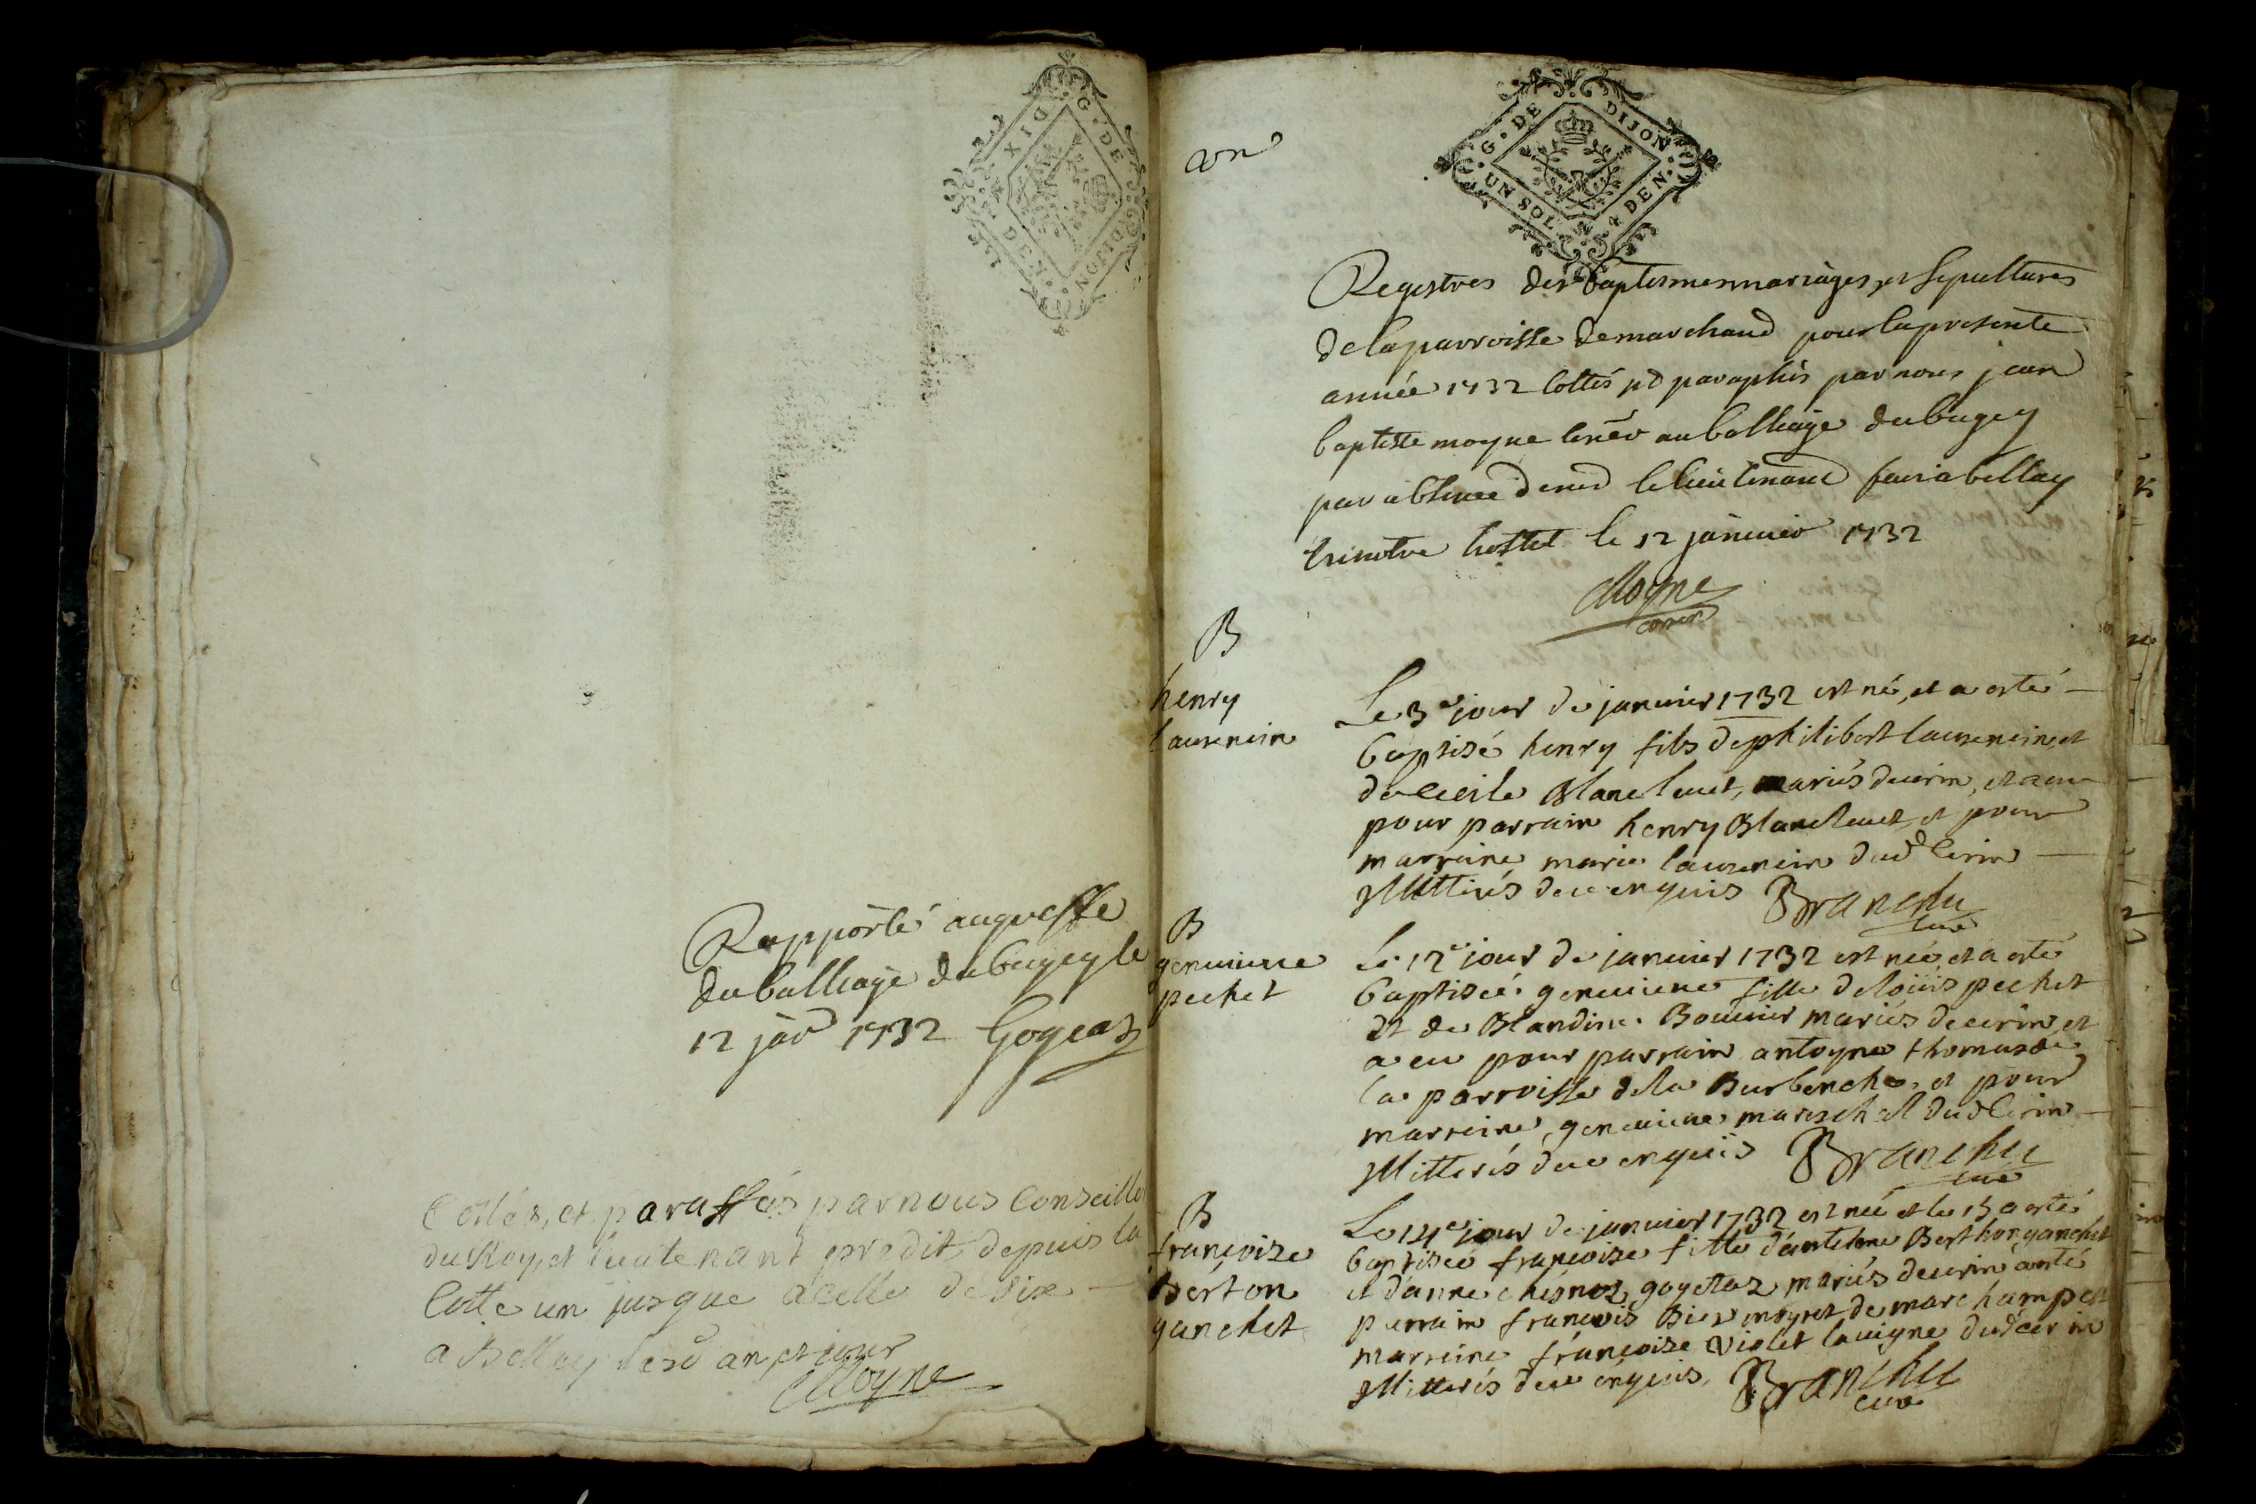 G. DE DIJON
DIX DEN.
Rapporté au greffe
du balliage du bugey le
12 janr 1732 Goyet
Cottés, et paraffés par nous Conseille
du Roy, et lieutenant predit depuis la
Cotte un jusque a celle de dix
a Belley lesd an et jour
Moyne
G. DE DIJON
UN SOL 4 DEN.
Registres des baptesmes mariages, et sepultures
de la parroisse de marchand pour la presente
année 1732 Cottés et paraphés par nous jean
baptiste moyne au balliage du bugey
par absence de le lieutenant fait a bellay
hostel le 12 janvier 1732
Moyne
B
henry
laurencin
Le 3e jour de janvier 1732 est né, et a esté
baptisé henry fils de philibert laurencin, et
de Cecile Blanc mariés de cerin, et a eu
pour parrain henry Blanc et pour
marraine marie laurencin dud Cerin
Illitterés de ce enquis Branchu
curé
B
genevieve
pechet
Le 12e jour de janvier 1732 est née et a esté
baptisée genevieve fille de loüis pechet
et de Blandine Bouvier mariés de cerin, et
a eu pour parrain antoyne thomas de
la parroisse de la Burbenche, et pour
marraine genevieve mareschal dud Cerin
Illitterés de ce enquis Branchu
curé
B
françoise
Berton
ganchet
Le 14e jour de janvier 1732 est née et le 15 a esté
baptisée françoise fille d'antelme Berthon ganchet
et d'anne goyettaz mariés de cerin a esté
parrain françois de marchamp et
marraine françoise violet lavigne dud cerin
Illitterés de ce enquis, Branchu
curé